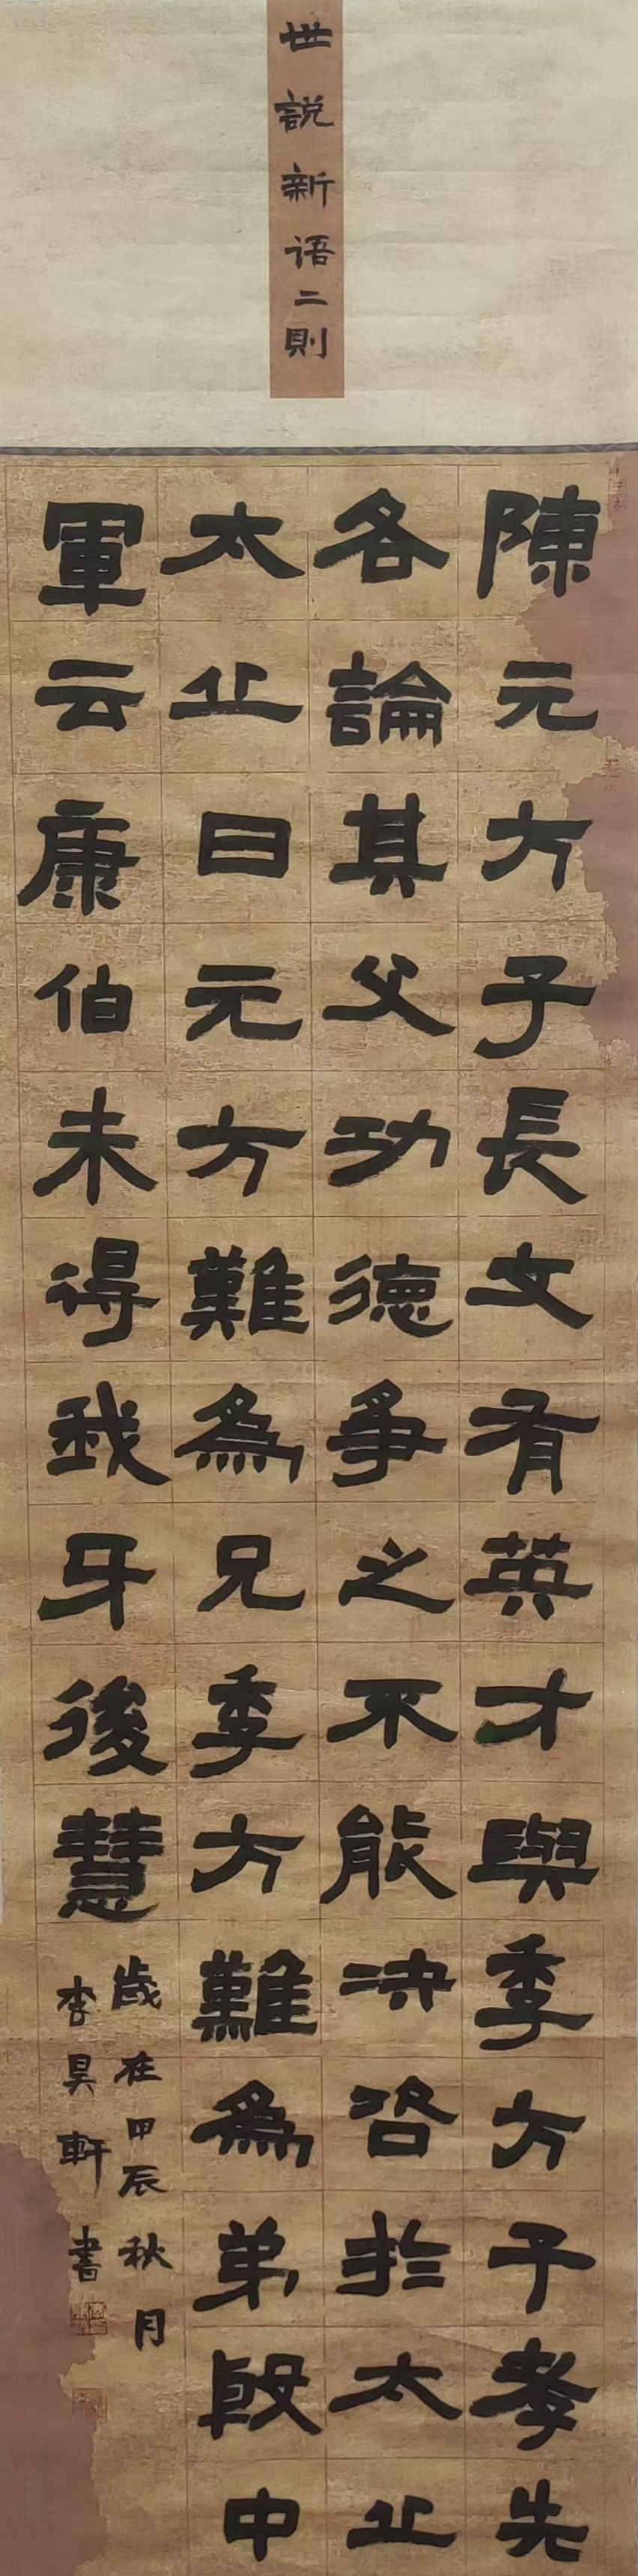 世說新语二則
陳元方子長文有英才與季方子孝先
各論其父功德爭之不能决咨於太丘
太丘曰元方難為兄季方難為弟殷中
軍云康伯未得我牙後慧
歲在甲辰秋月
李昊軒書